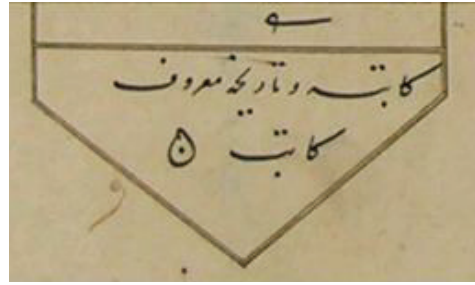 كاتبه وتاريخه معروف
كاتب